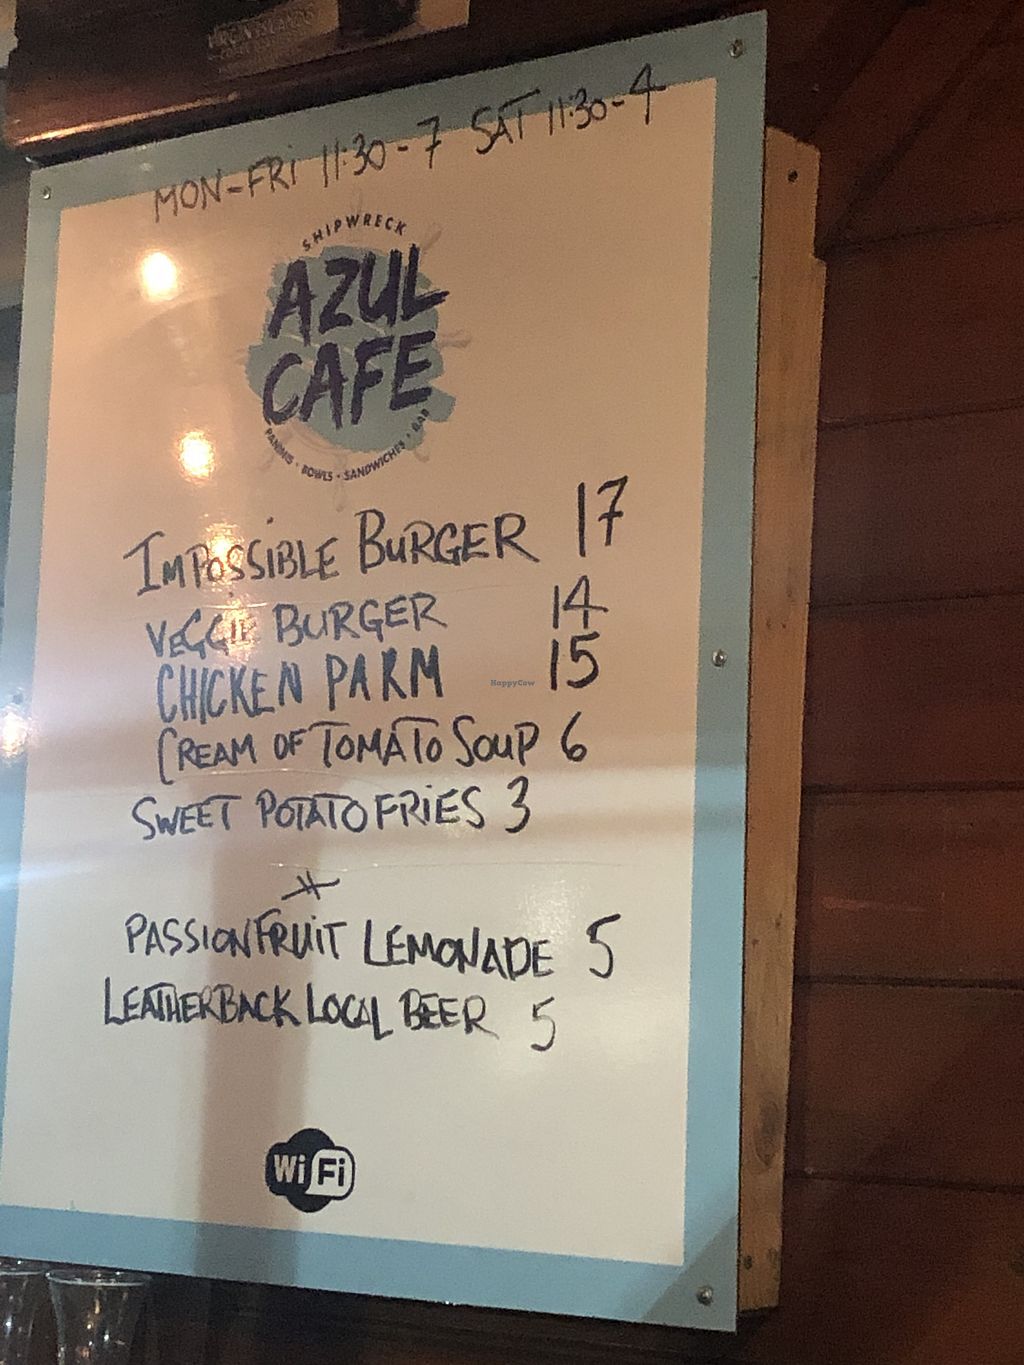 VIRGIN ISLANDS
MON-FRI 11:30-7 SAT 11:30-4
SHIPWRECK
AZUL
CAFE
PANINIS • BOWLS • SANDWICHES • BAR
IMPOSSIBLE BURGER 17
VEGGIE BURGER 14
CHICKEN PARM 15
CREAM OF TOMATO SOUP 6
SWEET POTATO FRIES 3
PASSIONFRUIT LEMONADE 5
LEATHERBACK LOCAL BEER 5
WiFi
HappyCow